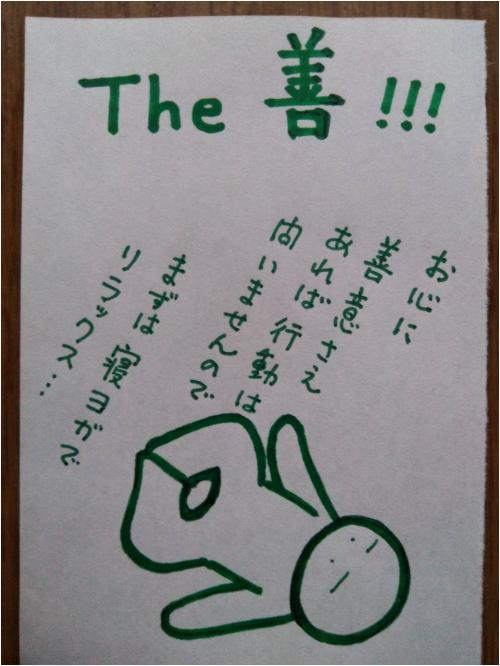 The 善!!!
お心に
善意さえ
あれば行動は
問いませんので
まずは寝ヨガで
リラックス…